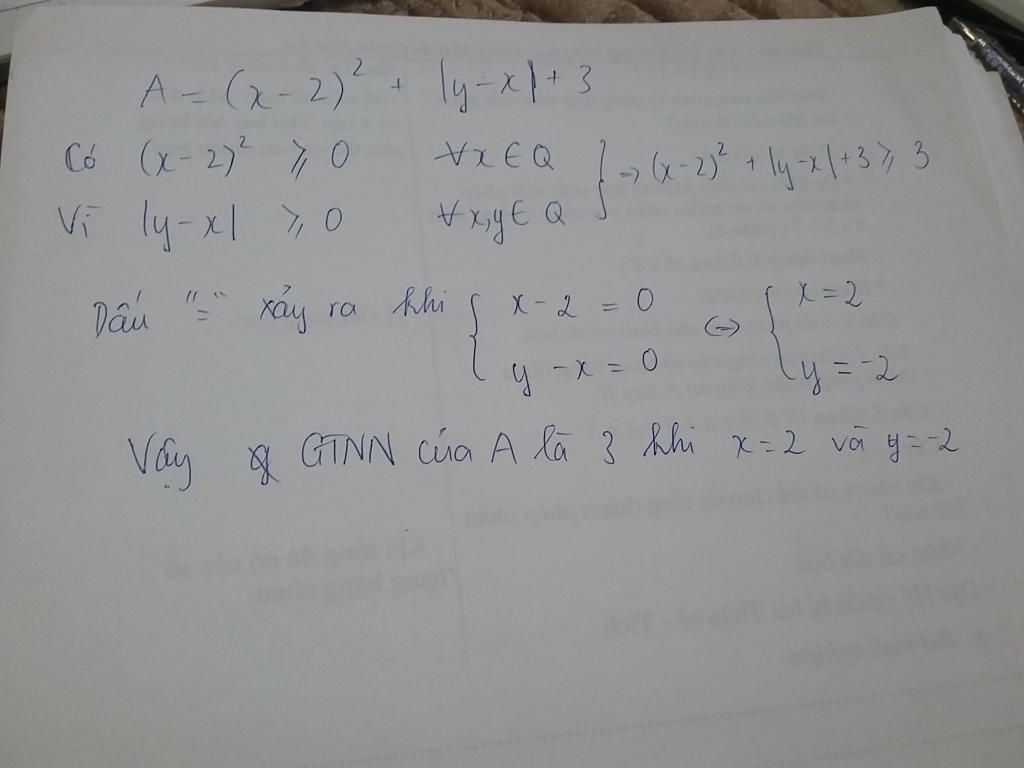 A = (x-2)² + |y-x| + 3
Có (x-2)² ⩾ 0 ∀x ∈ Q
Vì |y-x| ⩾ 0 ∀x,y ∈ Q } => (x-2)² + |y-x| + 3 ⩾ 3
Dấu "=" xảy ra khi { x-2 = 0 <=> { x = 2
y - x = 0 y = -2
Vậy GTNN của A là 3 khi x = 2 và y = -2